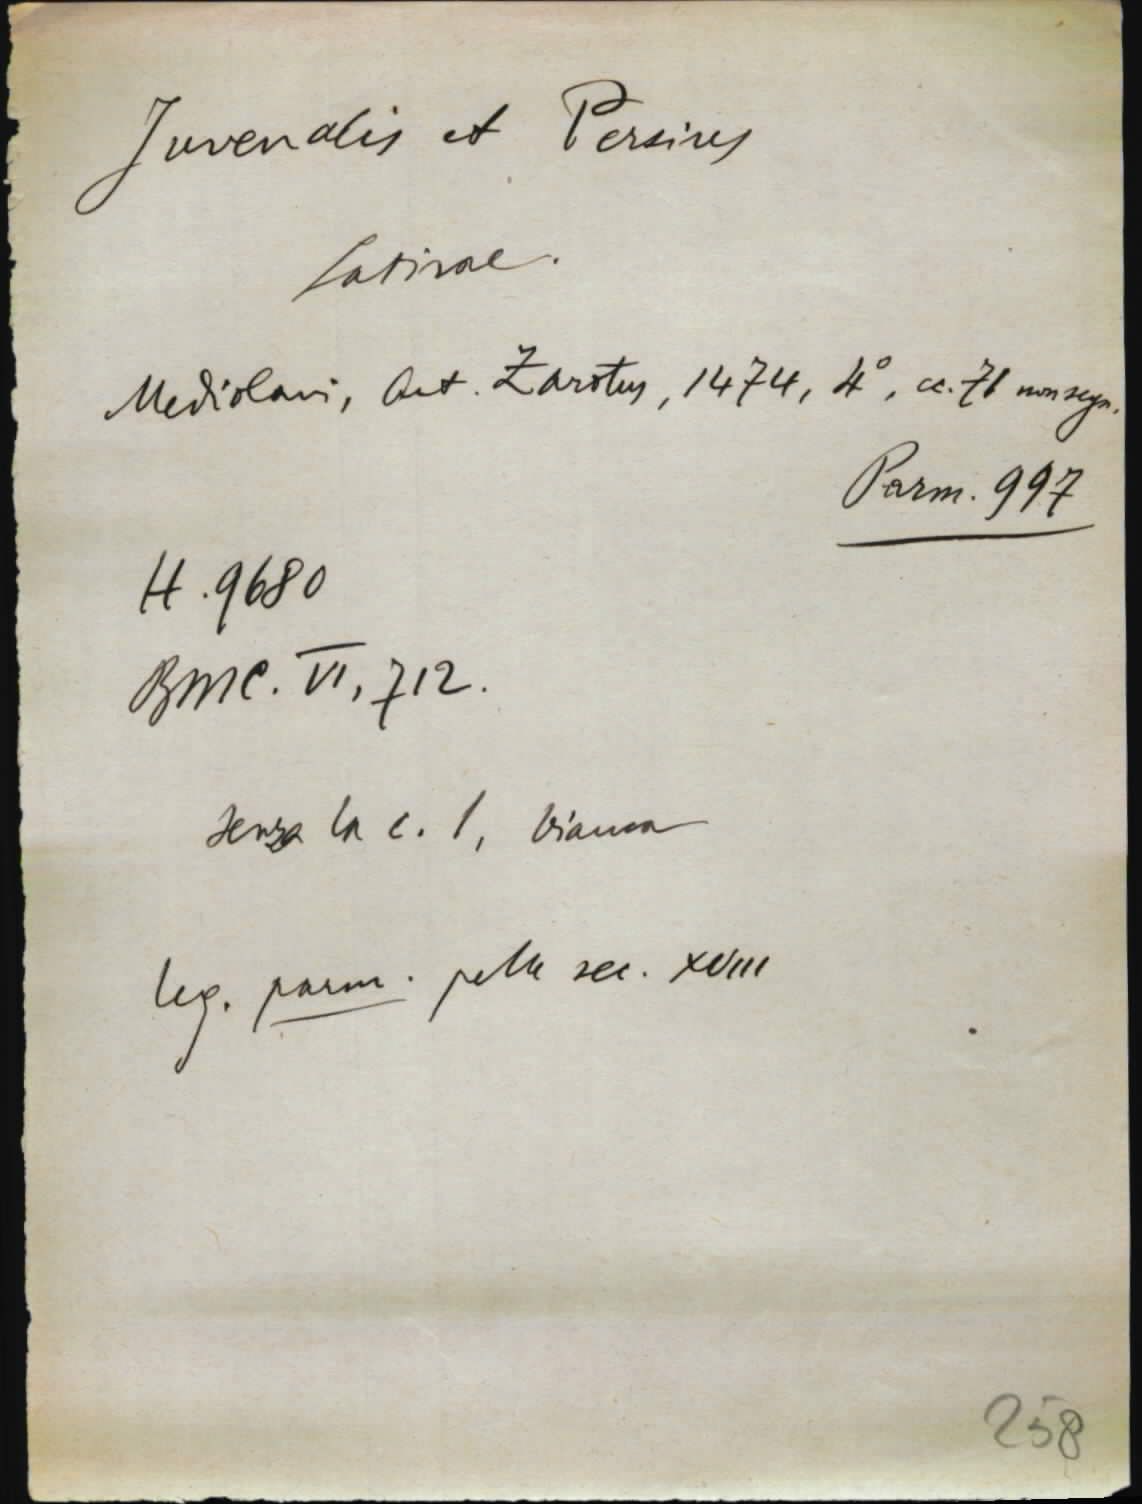 Juvenalis et Persius
Satirae.
Mediolani, Ant. Zarotus, 1474, 4°, cc. 71 non segn.
Parm. 997
H. 9680
BMC. VI, 712.
senza la c. 1, bianca
leg. parm. pelle sec. XVIII
258